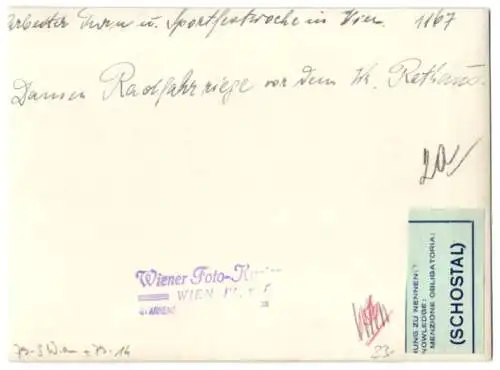 Arbeiter Turn u. Sportfestwoche in Wien. 1167
Damen Radfahrriege vor dem Rathaus.
20
Wiener Foto-
WIEN
UNG ZU NENNEN:
NOWLEDGE:
MENZIONE OBLIGATORIA:
(SCHOSTAL)
23.-